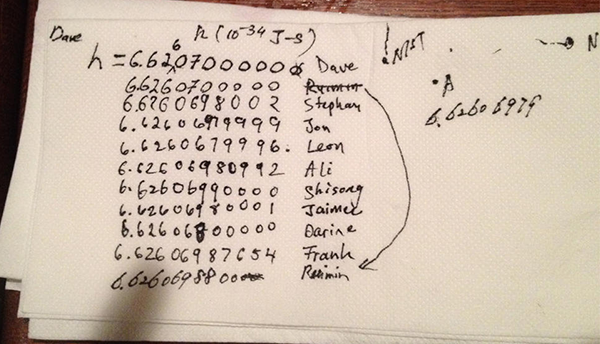 Dave
h (10^-34 J-s)
h = 6.626070000000 Dave
6.6260700000 Ruimin
6.6260698002 Stephan
6.6260697999 Jon
6.6260679996. Leon
6.62606980992 Ali
6.6260699 0000 Shisong
6.6260698 0001 Jaimee
6.626068 00000 Darine
6.6260698 7654 Frank
6.6260698800 Ruimin
NIST
N
A
6.62606979